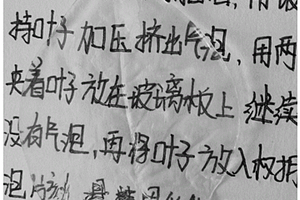 持叶子加压挤出气泡，用两
夹着叶子放在玻璃板上继续
没有气泡，再将叶子放入权折
泡